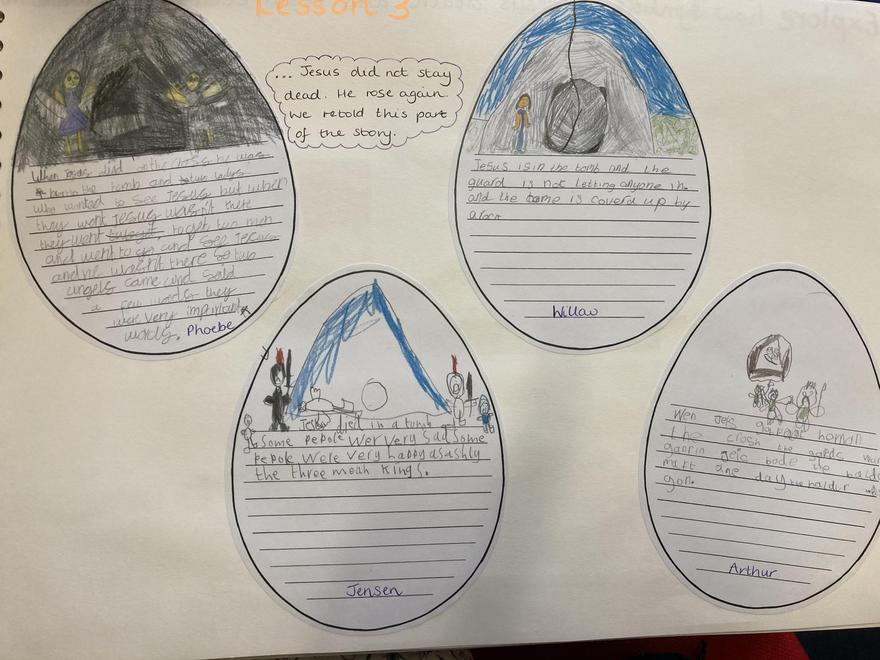 Lesson 3
... Jesus did not stay
dead. He rose again.
We retold this part
of the story.
When died on the cross he was
in the tomb and two ladys
who wanted to see Jesus but when
they went Jesus wasn't there
they went to get two men
and went to go and see Jesus
and he wasn't there so two
angels came and said
a few words they
were very important
words.
Phoebe
Jesus is in the tomb and the
guard is not letting anyone in.
and the tome is coverd up by
a rock
Willow
Jesus died in a tumb
Some pepole wer very sad some
pepole were very happy asashly
the three moah Kings.
Jensen
Wen Jejs
the crosh the gards
Jejs bode the
one day the
gon.
Arthur